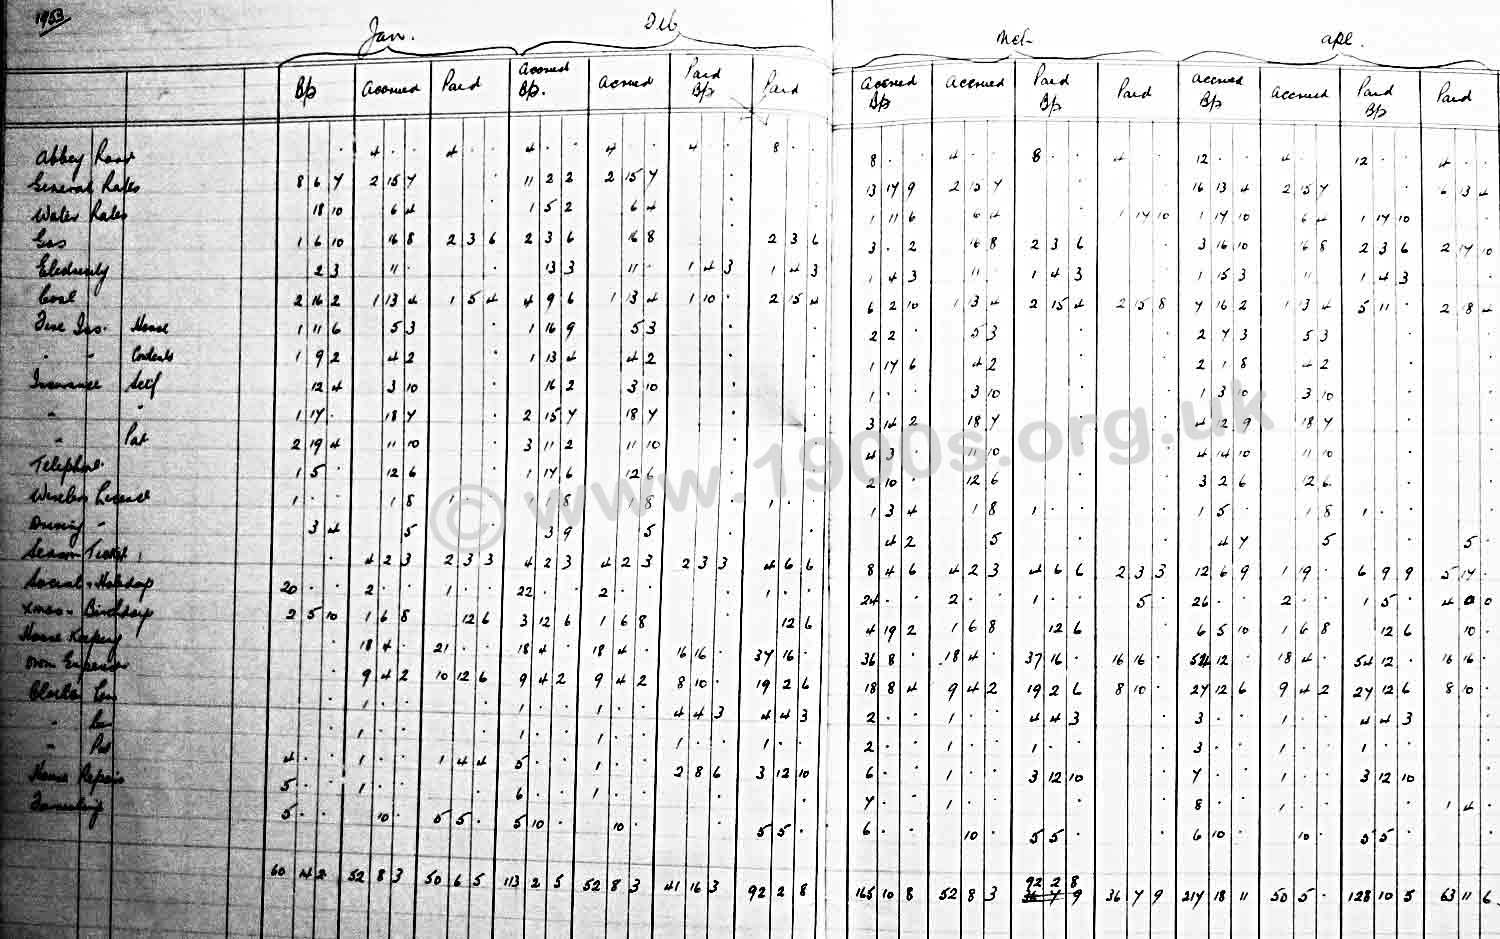 1953
Jan. Feb Mch apl.
B/p accrued Paid accrued B/p. accrued Paid B/p Paid accrued B/p accrued Paid B/p Paid accrued B/p accrued Paid B/p Paid
Abbey Road . 4 . . 4 . . 4 . . 4 . . 4 . . 8 . . 8 . . 4 . . 8 . . 4 . . 12 . . 4 . . 12 . . 4 . .
General Rates 8 6 7 2 15 7 . 11 2 2 2 15 7 . . 13 17 9 2 15 7 . . 16 13 4 2 15 7 . . 6 13 4
Water Rates 18 10 6 4 . 1 5 2 6 4 . . 1 11 6 6 4 . 1 17 10 1 17 10 6 4 1 17 10 .
Gas 1 6 10 16 8 2 3 6 2 3 6 16 8 . 2 3 6 3 . 2 16 8 2 3 6 . 3 16 10 16 8 2 3 6 2 17 10
Electricity 2 3 11 . . 13 3 11 . 1 4 3 1 4 3 1 4 3 11 . 1 4 3 . 1 15 3 11 1 4 3 .
Coal 2 16 2 1 13 4 1 5 4 4 9 6 1 13 4 1 10 . 2 15 4 6 2 10 1 13 4 2 15 4 2 15 8 7 16 2 1 13 4 5 11 . 2 8 4
Fire Ins. House 1 11 6 5 3 . 1 16 9 5 3 . . 2 2 . 5 3 . . 2 7 3 5 3 . .
" " Contents 1 9 2 4 2 . 1 13 4 4 2 . . 1 17 6 4 2 . . 2 1 8 4 2 . .
Insurance Self 12 4 3 10 . 16 2 3 10 . . 1 . . 3 10 . . 1 3 10 3 10 . .
" " 1 17 . 18 7 . 2 15 7 18 7 . . 3 14 2 18 7 . . 4 12 9 18 7 . .
" Pat 2 19 4 11 10 . 3 11 2 11 10 . . 4 3 . 11 10 . . 4 14 10 11 10 . .
Telephone 1 5 . 12 6 . 1 17 6 12 6 . . 2 10 . 12 6 . . 3 2 6 12 6 . .
Wireless Licence 1 . . 1 8 1 . . 1 8 1 8 . 1 . . 1 3 4 1 8 1 . . . 1 5 . 1 8 1 . . .
Driving " 3 4 5 . 3 9 5 . . 4 2 5 . . 4 7 5 . 5 .
Season Ticket . . 4 2 3 2 3 3 4 2 3 4 2 3 2 3 3 4 6 6 8 4 6 4 2 3 4 6 6 2 3 3 12 6 9 1 19 . 6 9 9 5 17 .
Social & Holidays 20 . . 2 . . 1 . . 22 . . 2 . . . 1 . . 24 . . 2 . . 1 . . 5 . 26 . . 2 . . 1 5 . 4 0 0
Xmas & Birthdays 2 5 10 1 6 8 12 6 3 12 6 1 6 8 . 12 6 4 19 2 1 6 8 12 6 . 6 5 10 1 6 8 12 6 10 .
House Keeping . 18 4 . 21 . . 18 4 . 18 4 . 16 16 . 37 16 . 36 8 . 18 4 . 37 16 . 16 16 . 54 12 . 18 4 . 54 12 . 16 16 .
Own Expenses . 9 4 2 10 12 6 9 4 2 9 4 2 8 10 . 19 2 6 18 8 4 9 4 2 19 2 6 8 10 . 27 12 6 9 4 2 27 12 6 8 10 .
Clothes . 1 . . . 1 . . 1 . . 4 4 3 4 4 3 2 . . 1 . . 4 4 3 . 3 . . 1 . . 4 4 3 .
" . 1 . . . 1 . . 1 . . 1 . . 1 . . 2 . . 1 . . 1 . . . 3 . . 1 . . 1 . . .
" Pat 4 . . 1 . . 1 4 4 5 . . 1 . . 2 8 6 3 12 10 6 . . 1 . . 3 12 10 . 7 . . 1 . . 3 12 10 .
House Repairs 5 . . 1 . . . 6 . . 1 . . . . 7 . . 1 . . . . 8 . . 1 . . . 1 4 .
5 . . 10 . 5 5 . 5 10 . 10 . . 5 5 . 6 . . 10 . 5 5 . . 6 10 . 10 . 5 5 . .
60 14 2 52 8 3 50 6 5 113 2 5 52 8 3 41 16 3 92 2 8 165 10 8 52 8 3 92 2 8 36 7 9 36 7 9 217 18 11 50 5 . 128 10 5 63 11 6
© www.1900s.org.uk